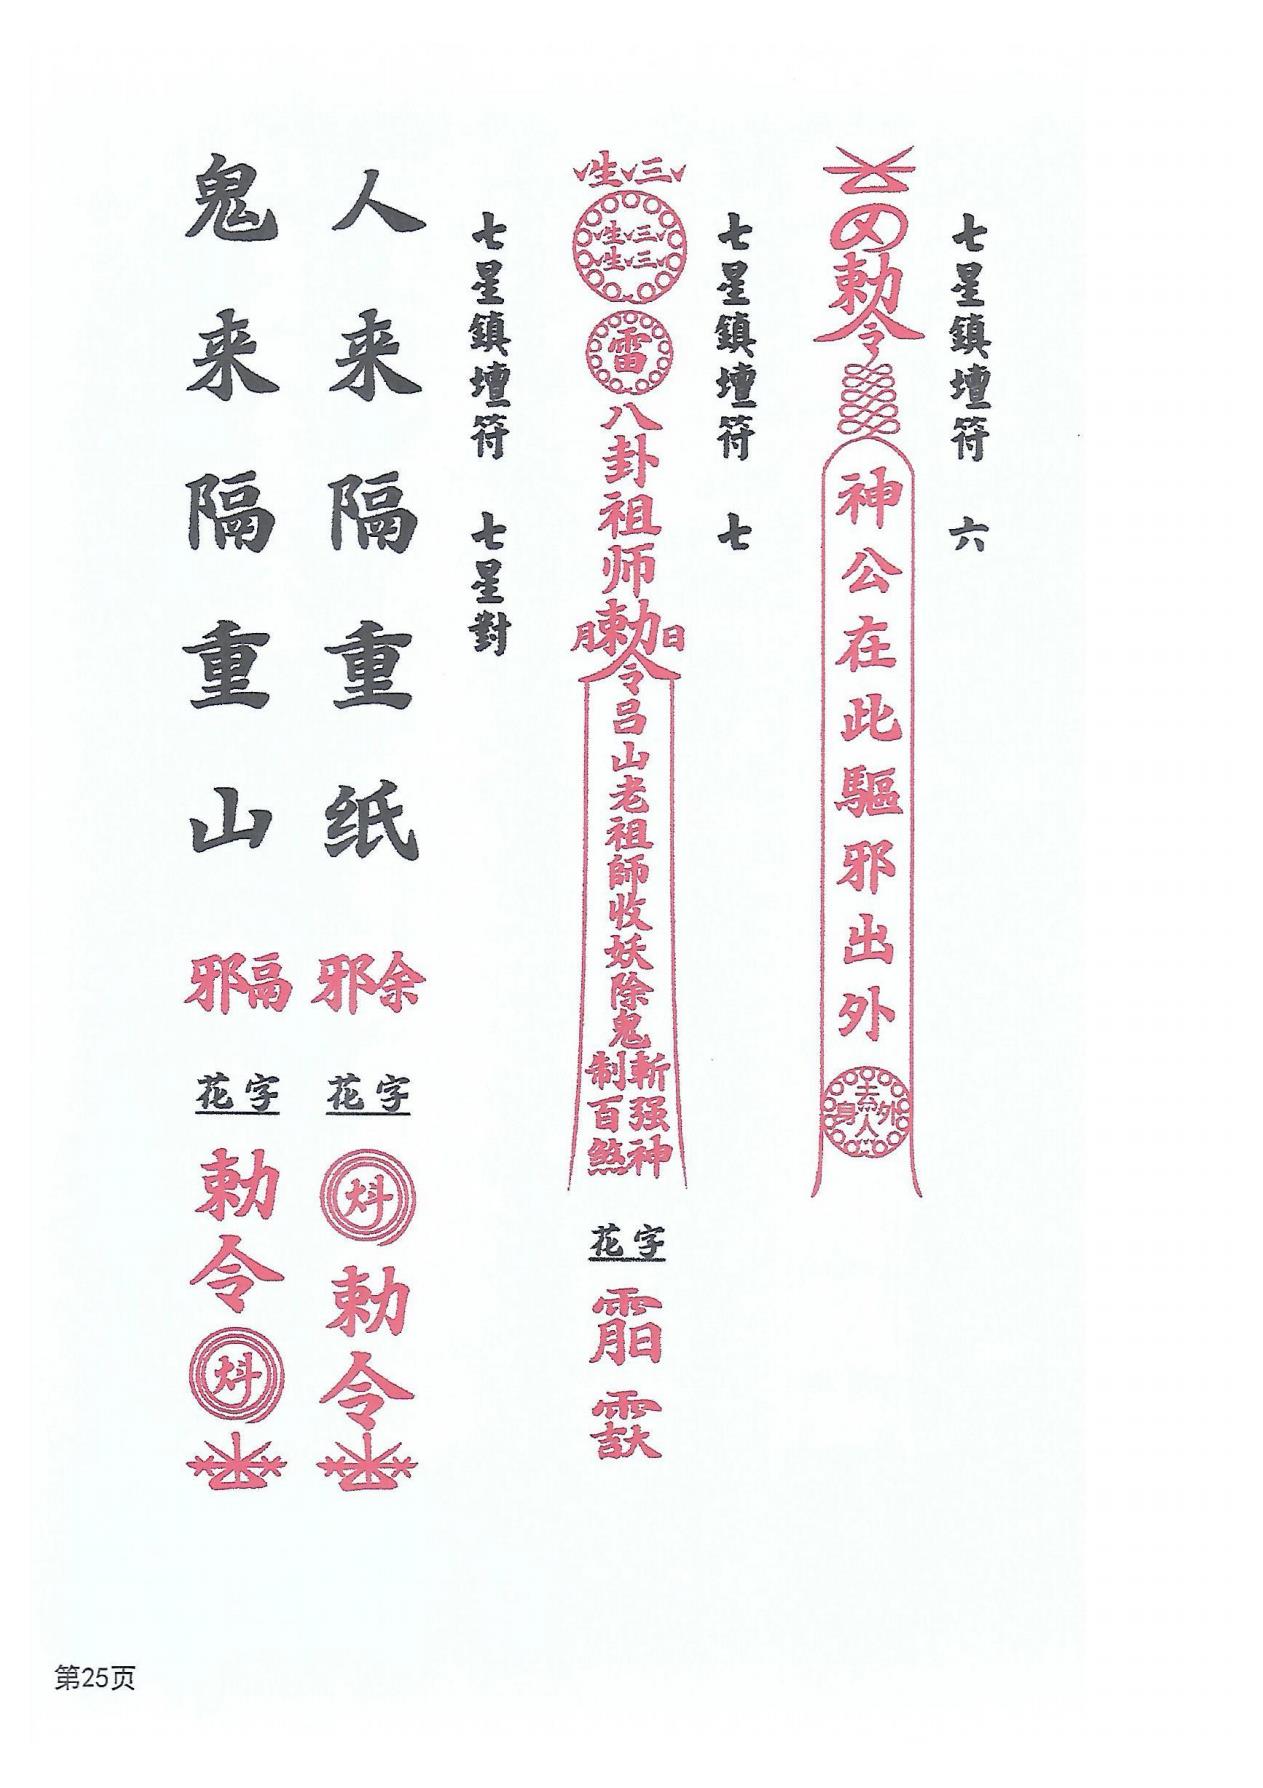 七星鎮壇符 六
勅令
神公在此驅邪出外
去
身 外
人
七星鎮壇符 七
生 三
生 三
生 三
雷
八卦祖师
月 勅 日
令
吕山老祖師收妖除鬼
斬强神
制百煞
花字
七星鎮壇符 七星對
人来隔重纸
邪余
花字
勅令
鬼来隔重山
邪鬲
花字
勅令
第25页